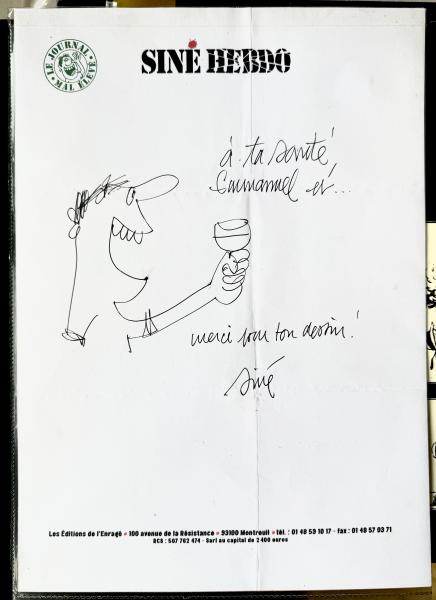 LE JOURNAL
MAL ÉLEVÉ
SINÉ HEBDO
à ta santé
Emmanuel et...
merci pour ton dessin!
Siné
Les Éditions de l'Enragé • 100 avenue de la Résistance • 93100 Montreuil • tél. : 01 48 59 10 17 - fax : 01 48 57 03 71
RCS : 507 762 474 - Sarl au capital de 2 400 euros